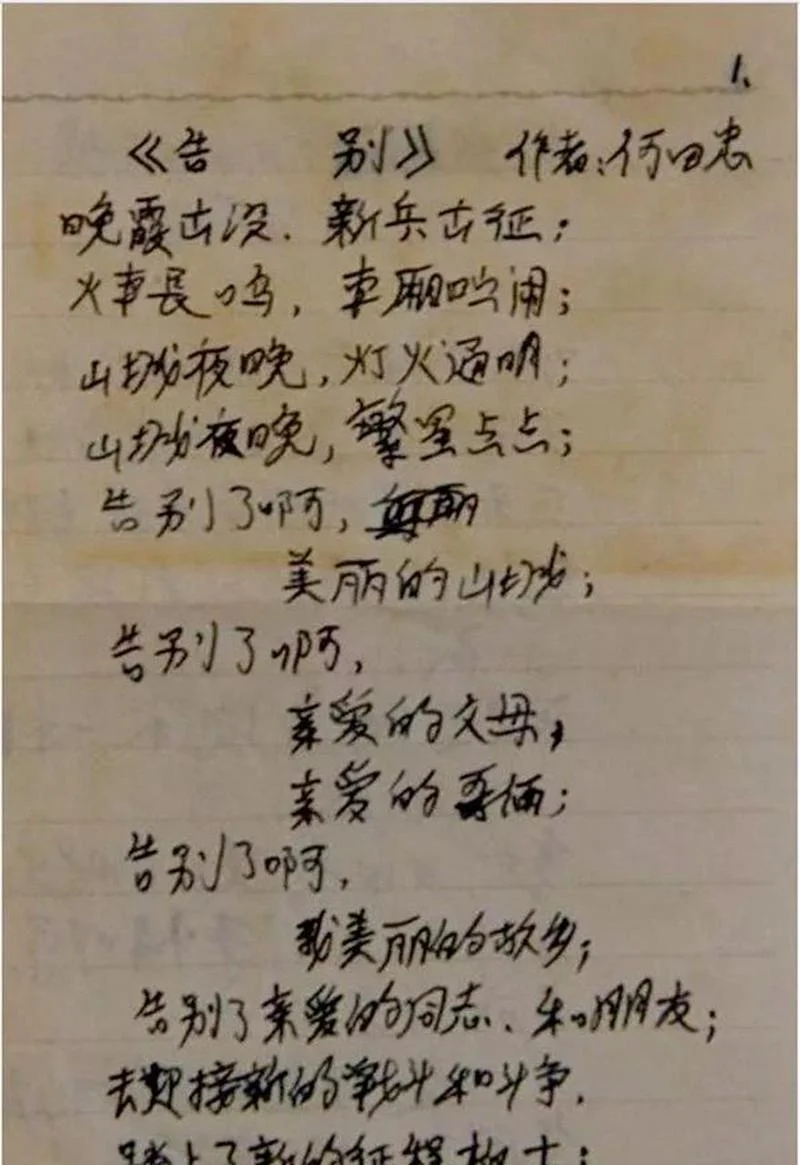 1.
《告 别》 作者:何田忠
晚霞出没.新兵出征;
火車長鸣,車厢吵闹;
山城夜晚,灯火通明;
山城夜晚,繁星点点;
告别了啊,
美丽的山城;
告别了啊,
亲爱的父母,
亲爱的哥俩;
告别了啊,
我美丽的故乡;
告别了亲爱的同志、和朋友;
去迎接新的战斗和斗争.
踏上了新的征程